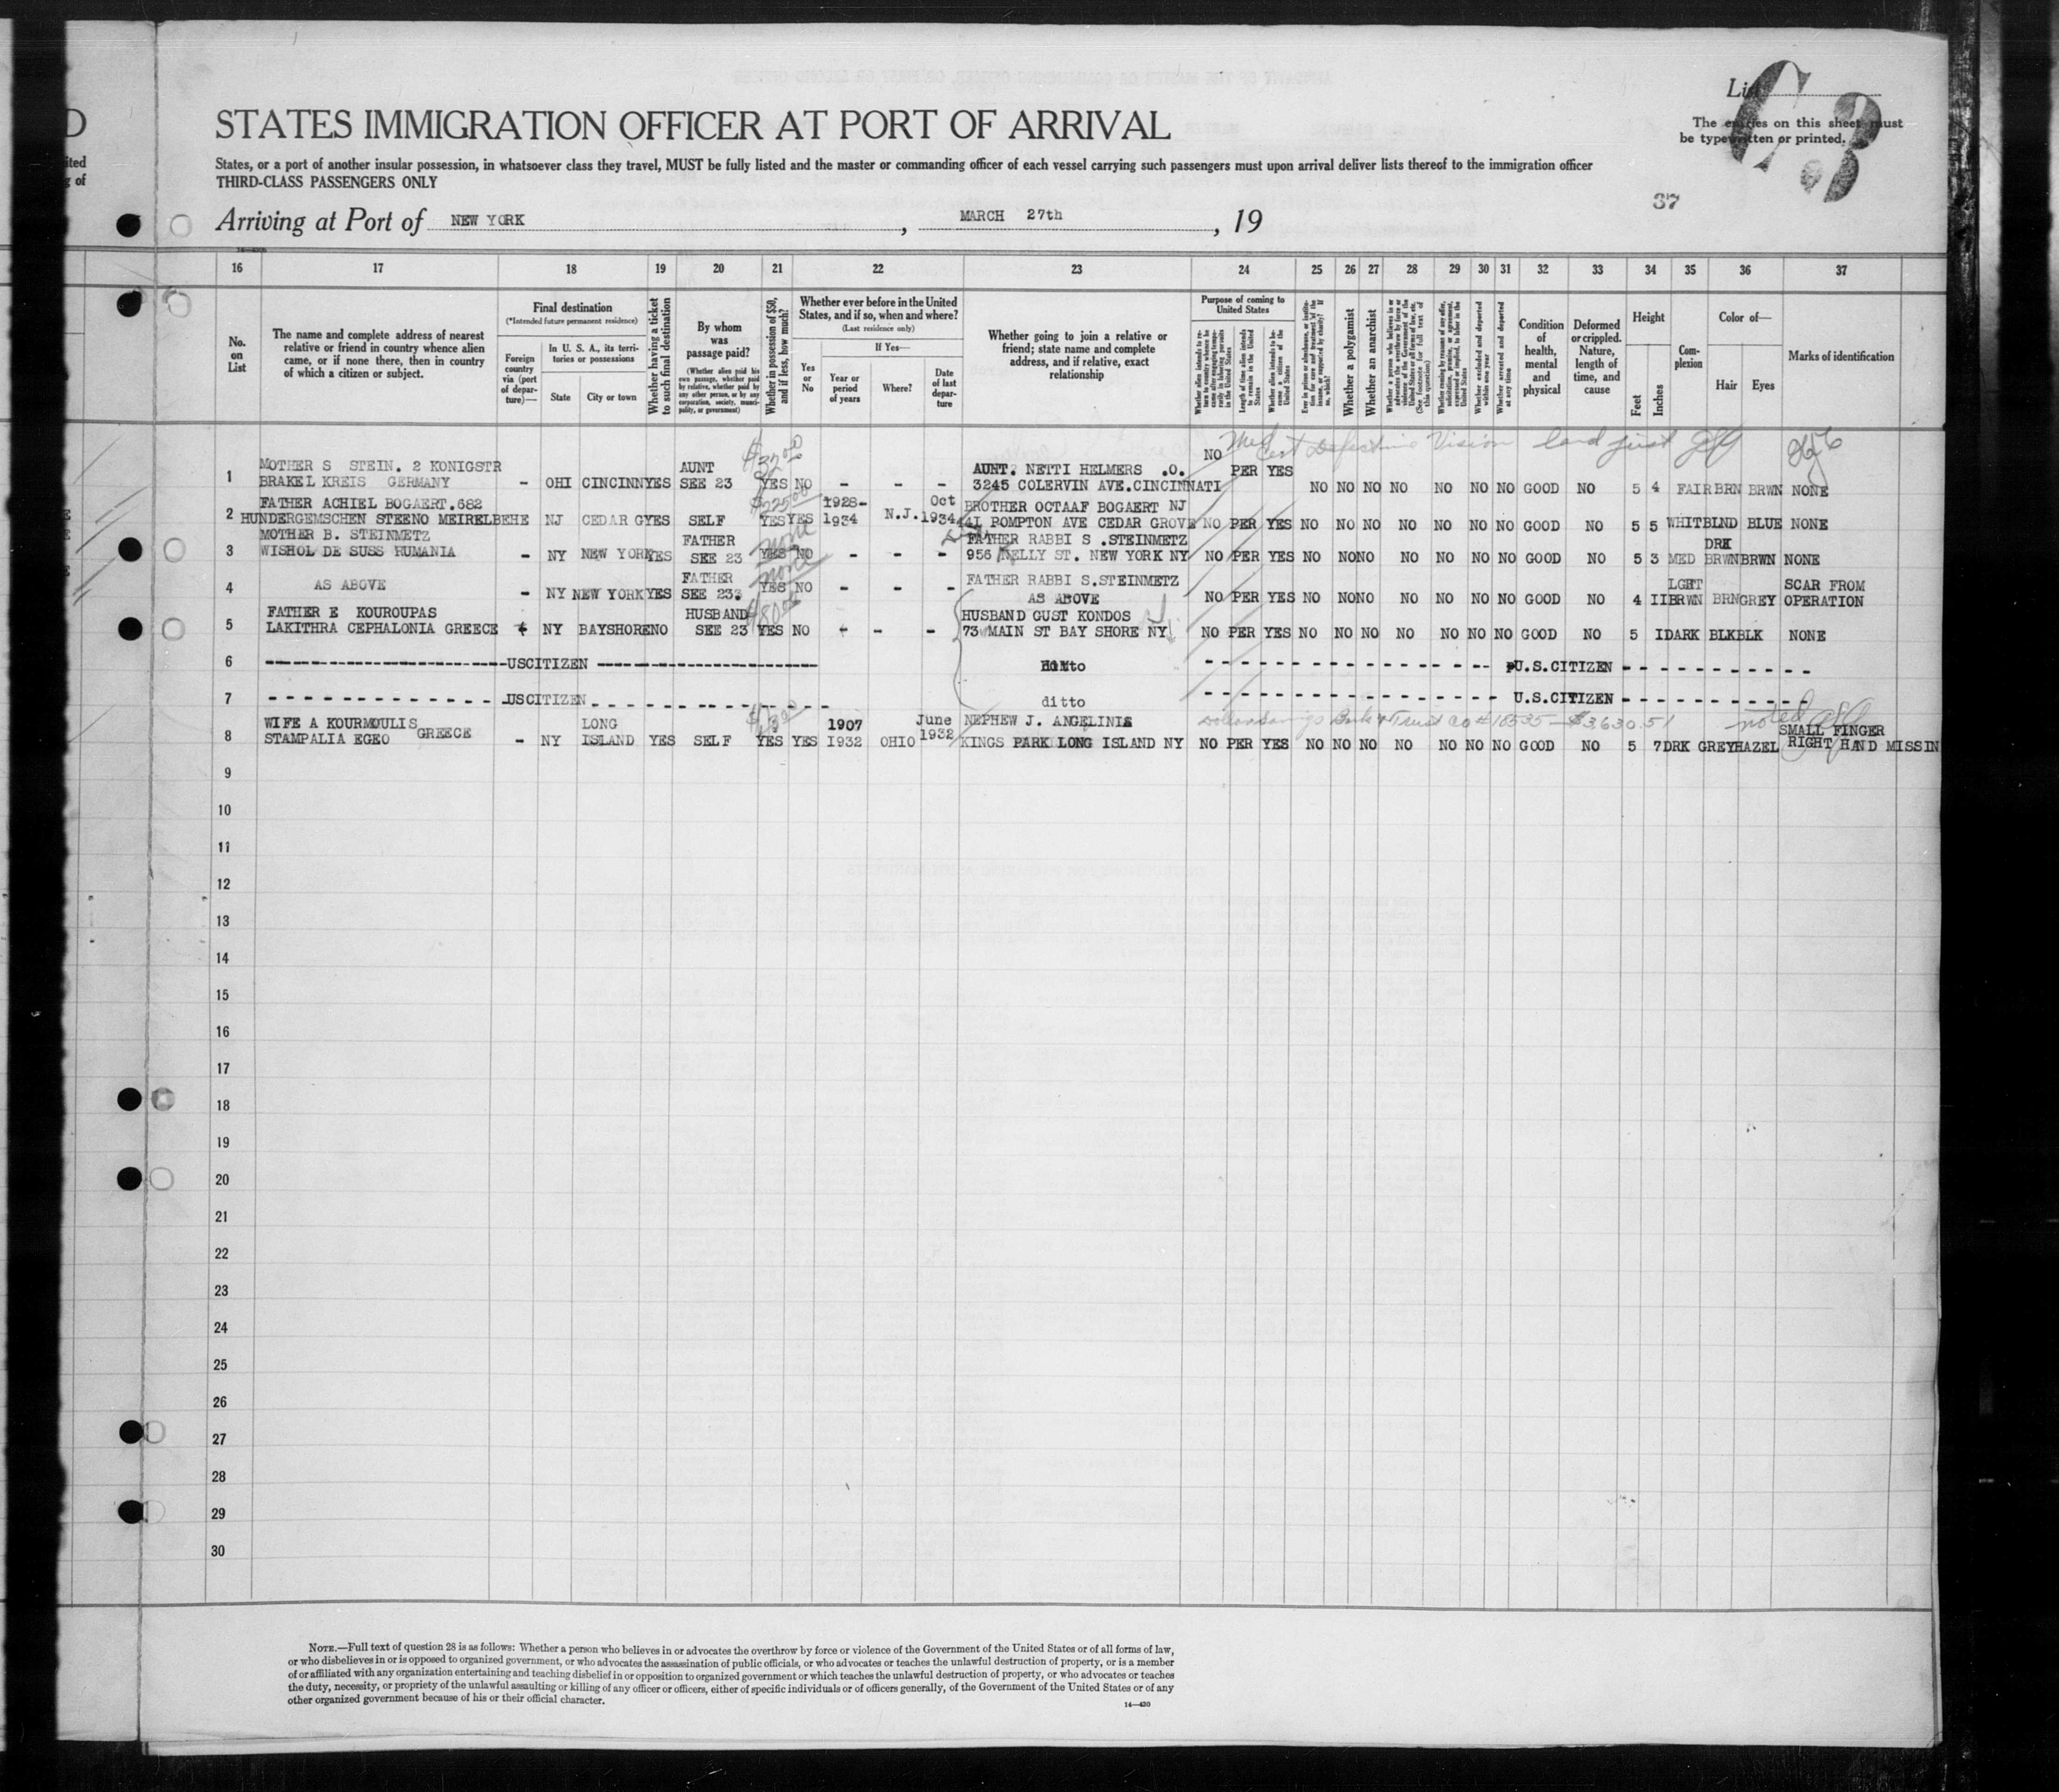 D
ited
g of
List
The entries on this sheet must
be typewritten or printed.
63
37
STATES IMMIGRATION OFFICER AT PORT OF ARRIVAL
States, or a port of another insular possession, in whatsoever class they travel, MUST be fully listed and the master or commanding officer of each vessel carrying such passengers must upon arrival deliver lists thereof to the immigration officer
THIRD-CLASS PASSENGERS ONLY
Arriving at Port of NEW YORK, MARCH 27th, 19
16 17 18 19 20 21 22 23 24 25 26 27 28 29 30 31 32 33 34 35 36 37
No. on List
The name and complete address of nearest
relative or friend in country whence alien
came, or if none there, then in country
of which a citizen or subject.
Final destination
(*Intended future permanent residence)
Foreign country via (port of departure)—
In U. S. A., its territories or possessions
State
City or town
Whether having a ticket to such final destination
By whom was passage paid?
(Whether alien paid his own passage, whether paid by relative, whether paid by any other person, or by any corporation, society, municipality, or government)
Whether in possession of $50, and if less, how much?
Whether ever before in the United
States, and if so, when and where?
(Last residence only)
Yes or No
If Yes—
Year or period of years
Where?
Date of last departure
Whether going to join a relative or
friend; state name and complete
address, and if relative, exact
relationship
Purpose of coming to United States
Whether a polygamist
Whether an anarchist
Condition of health, mental and physical
Deformed or crippled. Nature, length of time, and cause
Height
Feet
Inches
Complexion
Color of—
Hair
Eyes
Marks of identification
Med Cert Defective Vision land first
1 MOTHER S STEIN. 2 KONIGSTR AUNT $32 00 AUNT. NETTI HELMERS .O. NO PER YES
BRAKEL KREIS GERMANY - OHI CINCINN YES SEE 23 YES NO - - - 3245 COLERVIN AVE.CINCINNATI NO NO NO NO NO NO NO GOOD NO 5 4 FAIR BRN BRWN NONE
2 FATHER ACHIEL BOGAERT.682 $225 00 1928- Oct BROTHER OCTAAF BOGAERT NJ
HUNDERGEMSCHEN STEENO MEIRELBEHE NJ CEDAR G YES SELF YES YES 1934 N.J. 1934 44I POMPTON AVE CEDAR GROVE NO PER YES NO NO NO NO NO NO NO GOOD NO 5 5 WHIT BLND BLUE NONE
3 MOTHER B. STEINMETZ FATHER none FATHER RABBI S .STEINMETZ DRK
WISHOL DE SUSS RUMANIA - NY NEW YORK YES SEE 23 YES NO - - - 956 KELLY ST. NEW YORK NY NO PER YES NO NO NO NO NO NO NO GOOD NO 5 3 MED BRWN BRWN NONE
4 AS ABOVE FATHER none FATHER RABBI S.STEINMETZ LGHT SCAR FROM
- NY NEW YORK YES SEE 23. YES NO - - - AS ABOVE NO PER YES NO NO NO NO NO NO NO GOOD NO 4 II BRWN BRN GREY OPERATION
5 FATHER E KOUROUPAS HUSBAND $80 00 HUSBAND GUST KONDOS
LAKITHRA CEPHALONIA GREECE - NY BAYSHORE NO SEE 23 YES NO - - - 73 W MAIN ST BAY SHORE NY NO PER YES NO NO NO NO NO NO NO GOOD NO 5 I DARK BLK BLK NONE
6 USCITIZEN ditto U.S.CITIZEN
7 USCITIZEN ditto U.S.CITIZEN
Dollar Savings Bank & Trust Co # 18535 — $3630.51 noted
8 WIFE A KOURMOULIS LONG 1907 June NEPHEW J. ANGELINIS SMALL FINGER
STAMPALIA EGEO GREECE - NY ISLAND YES SELF YES YES I932 OHIO 1932 KINGS PARK LONG ISLAND NY NO PER YES NO NO NO NO NO NO NO GOOD NO 5 7 DRK GREY HAZEL RIGHT HAND MISSIN
9
10
11
12
13
14
15
16
17
18
19
20
21
22
23
24
25
26
27
28
29
30
NOTE.—Full text of question 28 is as follows: Whether a person who believes in or advocates the overthrow by force or violence of the Government of the United States or of all forms of law,
or who disbelieves in or is opposed to organized government, or who advocates the assassination of public officials, or who advocates or teaches the unlawful destruction of property, or is a member
of or affiliated with any organization entertaining and teaching disbelief in or opposition to organized government or which teaches the unlawful destruction of property, or who advocates or teaches
the duty, necessity, or propriety of the unlawful assaulting or killing of any officer or officers, either of specific individuals or of officers generally, of the Government of the United States or of any
other organized government because of his or their official character.
14—430